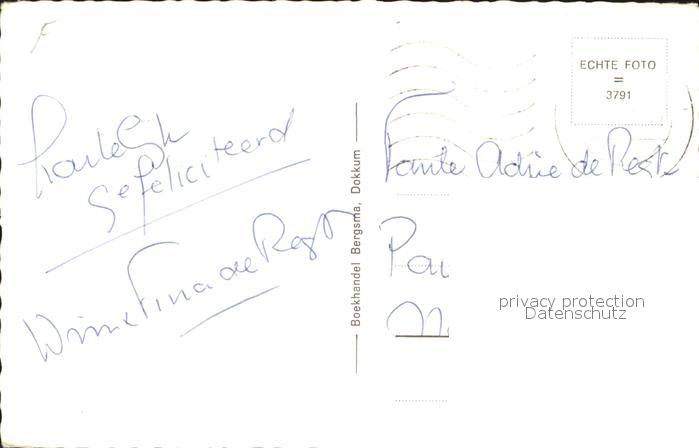 Hartelijk
Gefeliciteerd
Wim & Tina de
Boekhandel Bergsma, Dokkum
ECHTE FOTO
=
3791
Tante Adrie de
privacy protection
Datenschutz